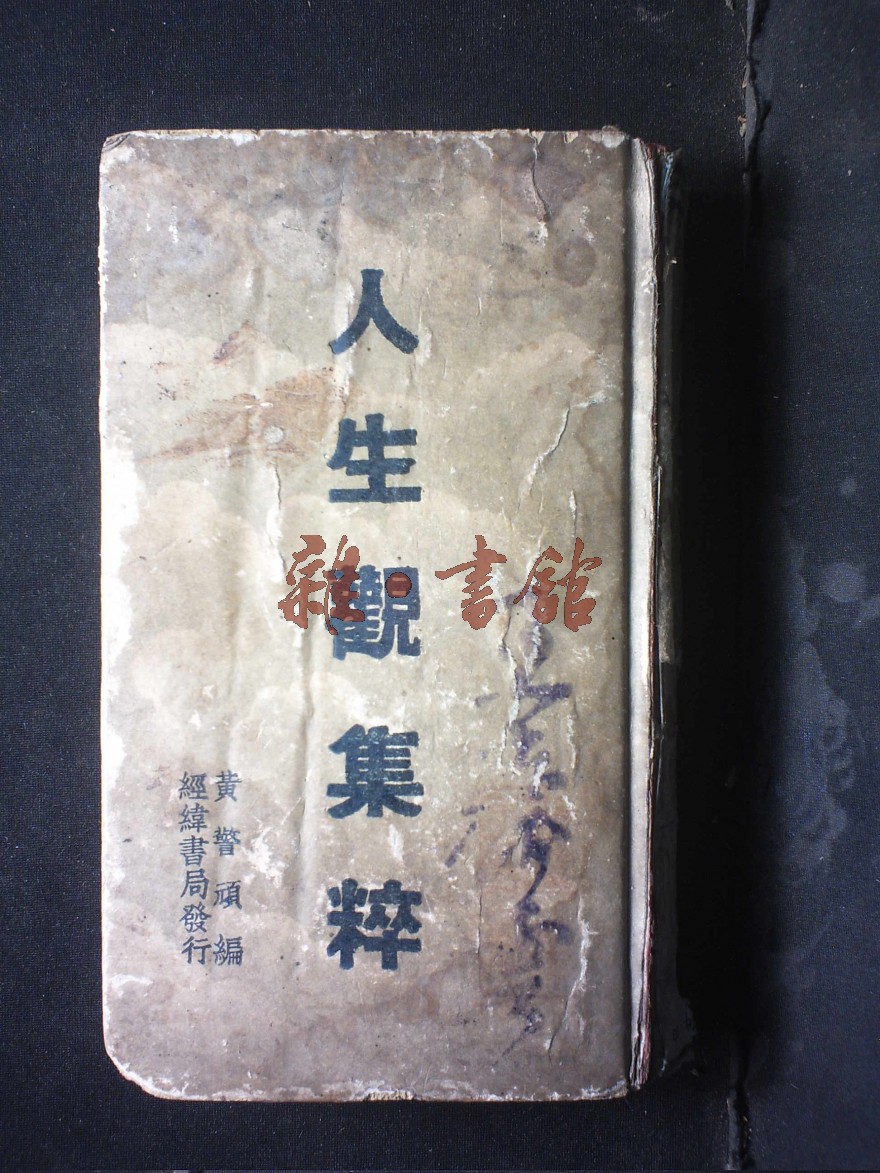 人生觀集粹
黃警頑編
經緯書局發行
雜·書館